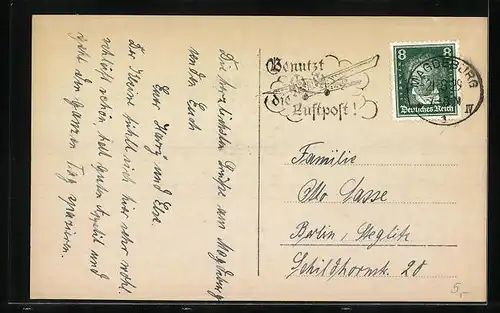 Die herzlichsten Grüße aus Magdeburg
senden Euch
Eure Harry und Else.
Der Kleine fühlt sich hier sehr wohl.
schläft schön, hat guten Appetit und
geht den ganzen Tag spazieren.
Benutzt
die
Luftpost!
8 8
Deutsches Reich
MAGDEBURG
1 IV
Familie
Otto Lasse
Berlin, Steglitz
Schildhornstr. 20
5,-